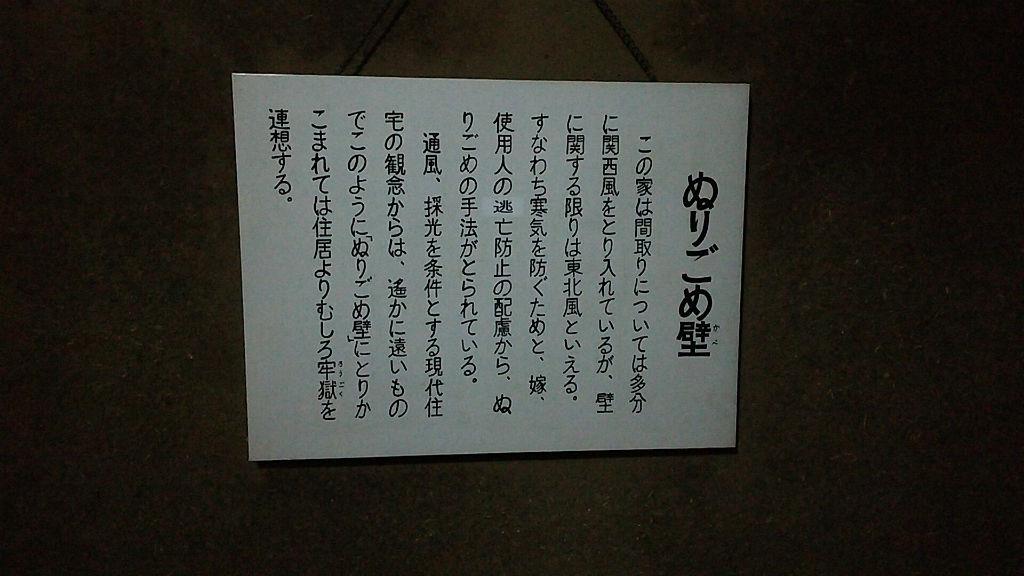 ぬりごめ壁
かべ
この家は間取りについては多分
に関西風をとり入れているが、壁
に関する限りは東北風といえる。
すなわち寒気を防ぐためと、嫁、
使用人の逃亡防止の配慮から、ぬ
りごめの手法がとられている。
通風、採光を条件とする現代住
宅の観念からは、遙かに遠いもの
でこのように「ぬりごめ壁」にとりか
こまれては住居よりむしろ牢獄を
ろうごく
連想する。